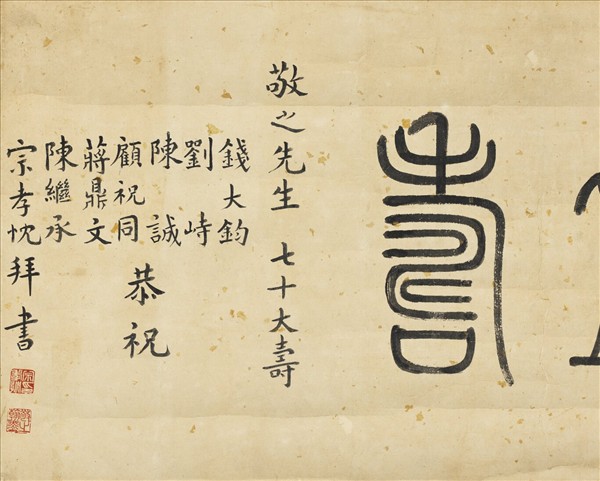 壽
敬之先生 七十大壽
錢大鈞
劉峙
陳誠
顧祝同
蔣鼎文
陳繼承
恭祝
宗孝忱拜書